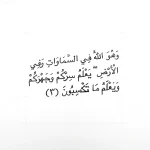 وَهُوَ اللَّهُ فِي السَّمَاوَاتِ وَفِي
الْأَرْضِ ۖ يَعْلَمُ سِرَّكُمْ وَجَهْرَكُمْ
وَيَعْلَمُ مَا تَكْسِبُونَ (٣)